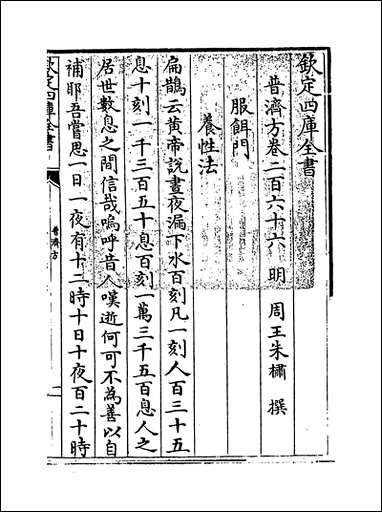 欽定四庫全書
普濟方卷二百六十六 明 周王朱橚 撰
服餌門
養性法
扁鵲云黄帝說晝夜漏下水百刻凡一刻人百三十五
息十刻一千三百五十息百刻一萬三千五百息人之
居世數息之間信哉嗚呼昔人嘆逝何可不為善以自
補耶吾嘗思一日一夜有十二時十日十夜百二十時
欽定四庫全書
普濟方
一